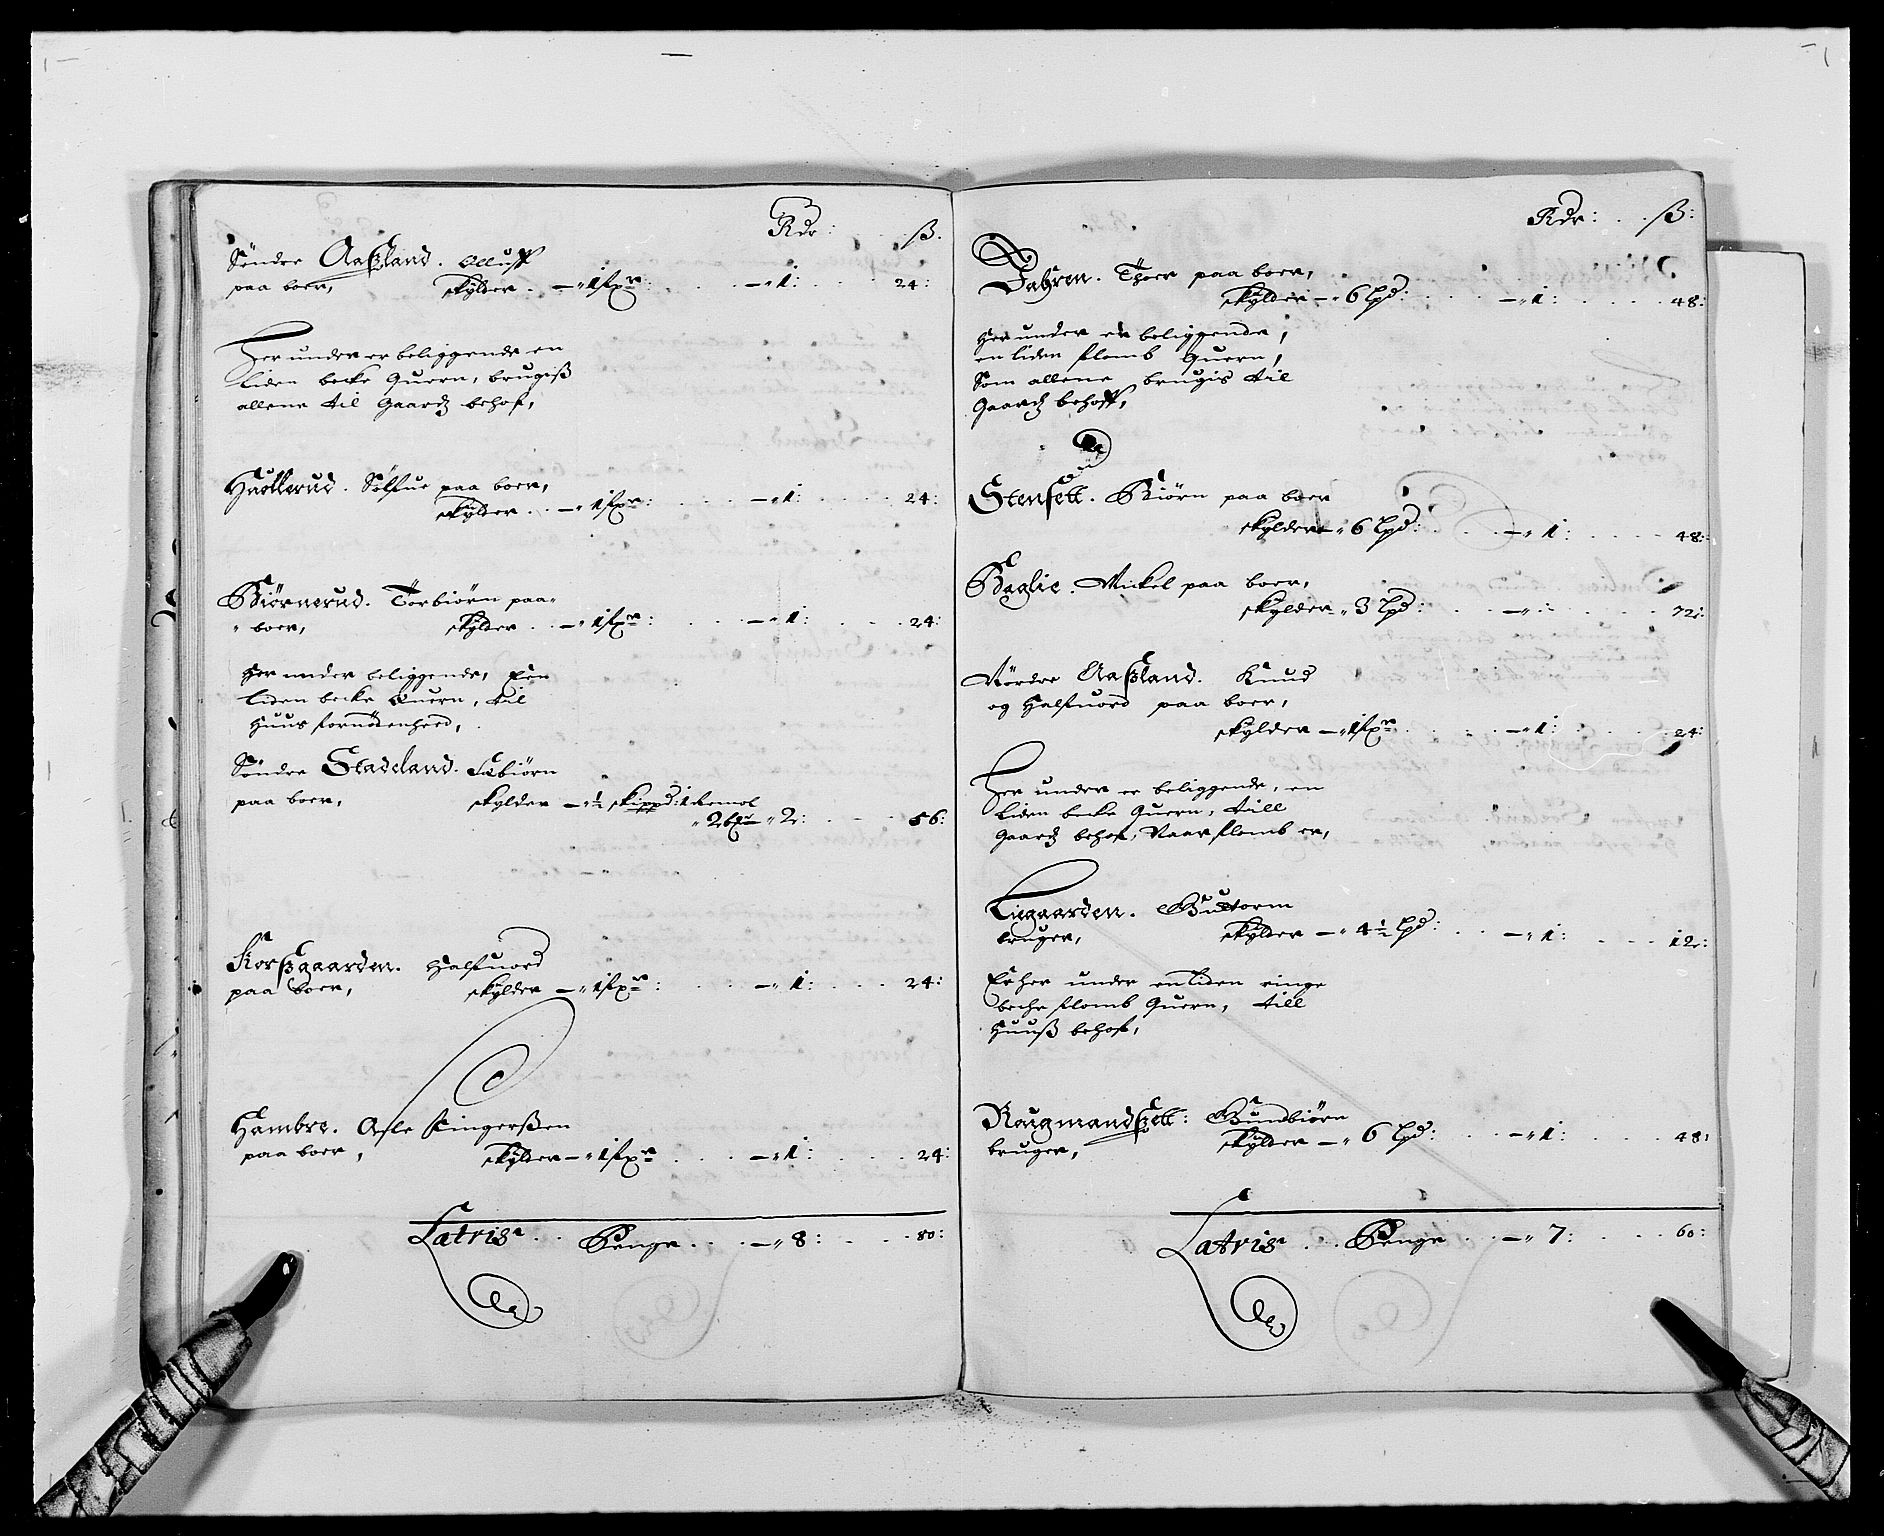 Rdr: ß.
Söndre Aaßland. Olluff
paa boer, skylder. - 1 fxr: - 1: 24:
Her under er beliggende en
liden becke Quern, brugiß
allene til Gaardz behof,
Haetterud. Sölfue paa boer,
skylder. - 1 fxr: - 1: 24:
Biörnerud. Torbiörn paa
boer, skylder. - 1 fxr: - 1: 24:
Her under beliggende, Een
liden becke Quern, til
Huus fornödenheed,
Söndre Stadeland. Eebiörn
paa boer, skylder - ½ skippd: 1 remol
2 bxr 2: 56:
Korßgaarden. Halfuord
paa boer, skylder - 1 fxr: - 1: 24:
Hambre. Asle Fingerßen
paa boer, skylder - 1 fxr - 1: 24:
Latris. Penge - 8: 80:
Rdr: ß:
Dahren. Thoer paa boer,
skylder - 6 lpd: - 1: 48:
Her under er beliggende,
en liden flomb Quern,
Som allene brugis til
Gaardz behoff,
Stensett. Biörn paa boer
skylder - 6 lpd: - 1: 48:
Baglie. Mickel paa boer,
skylder 3 lpd: - : 72:
Nördre Aaßland. Knud
og Halfuord paa boer,
skylder - 1 fxr - 1: 24:
Her under er beliggende, en
liden becke Quern, till
Gaardz behof, Naar flomb er,
Liegaarden. Guttorm
bruger, skylder - 4½ lpd: - 1: 12:
Er her under en liden ringe
beche flomb Quern, till
Huuß behof,
Rougmandßett: Gundbiörn
bruger, skylder - 6 lpd: - 1: 48:
Latris. Penge - 7: 60: